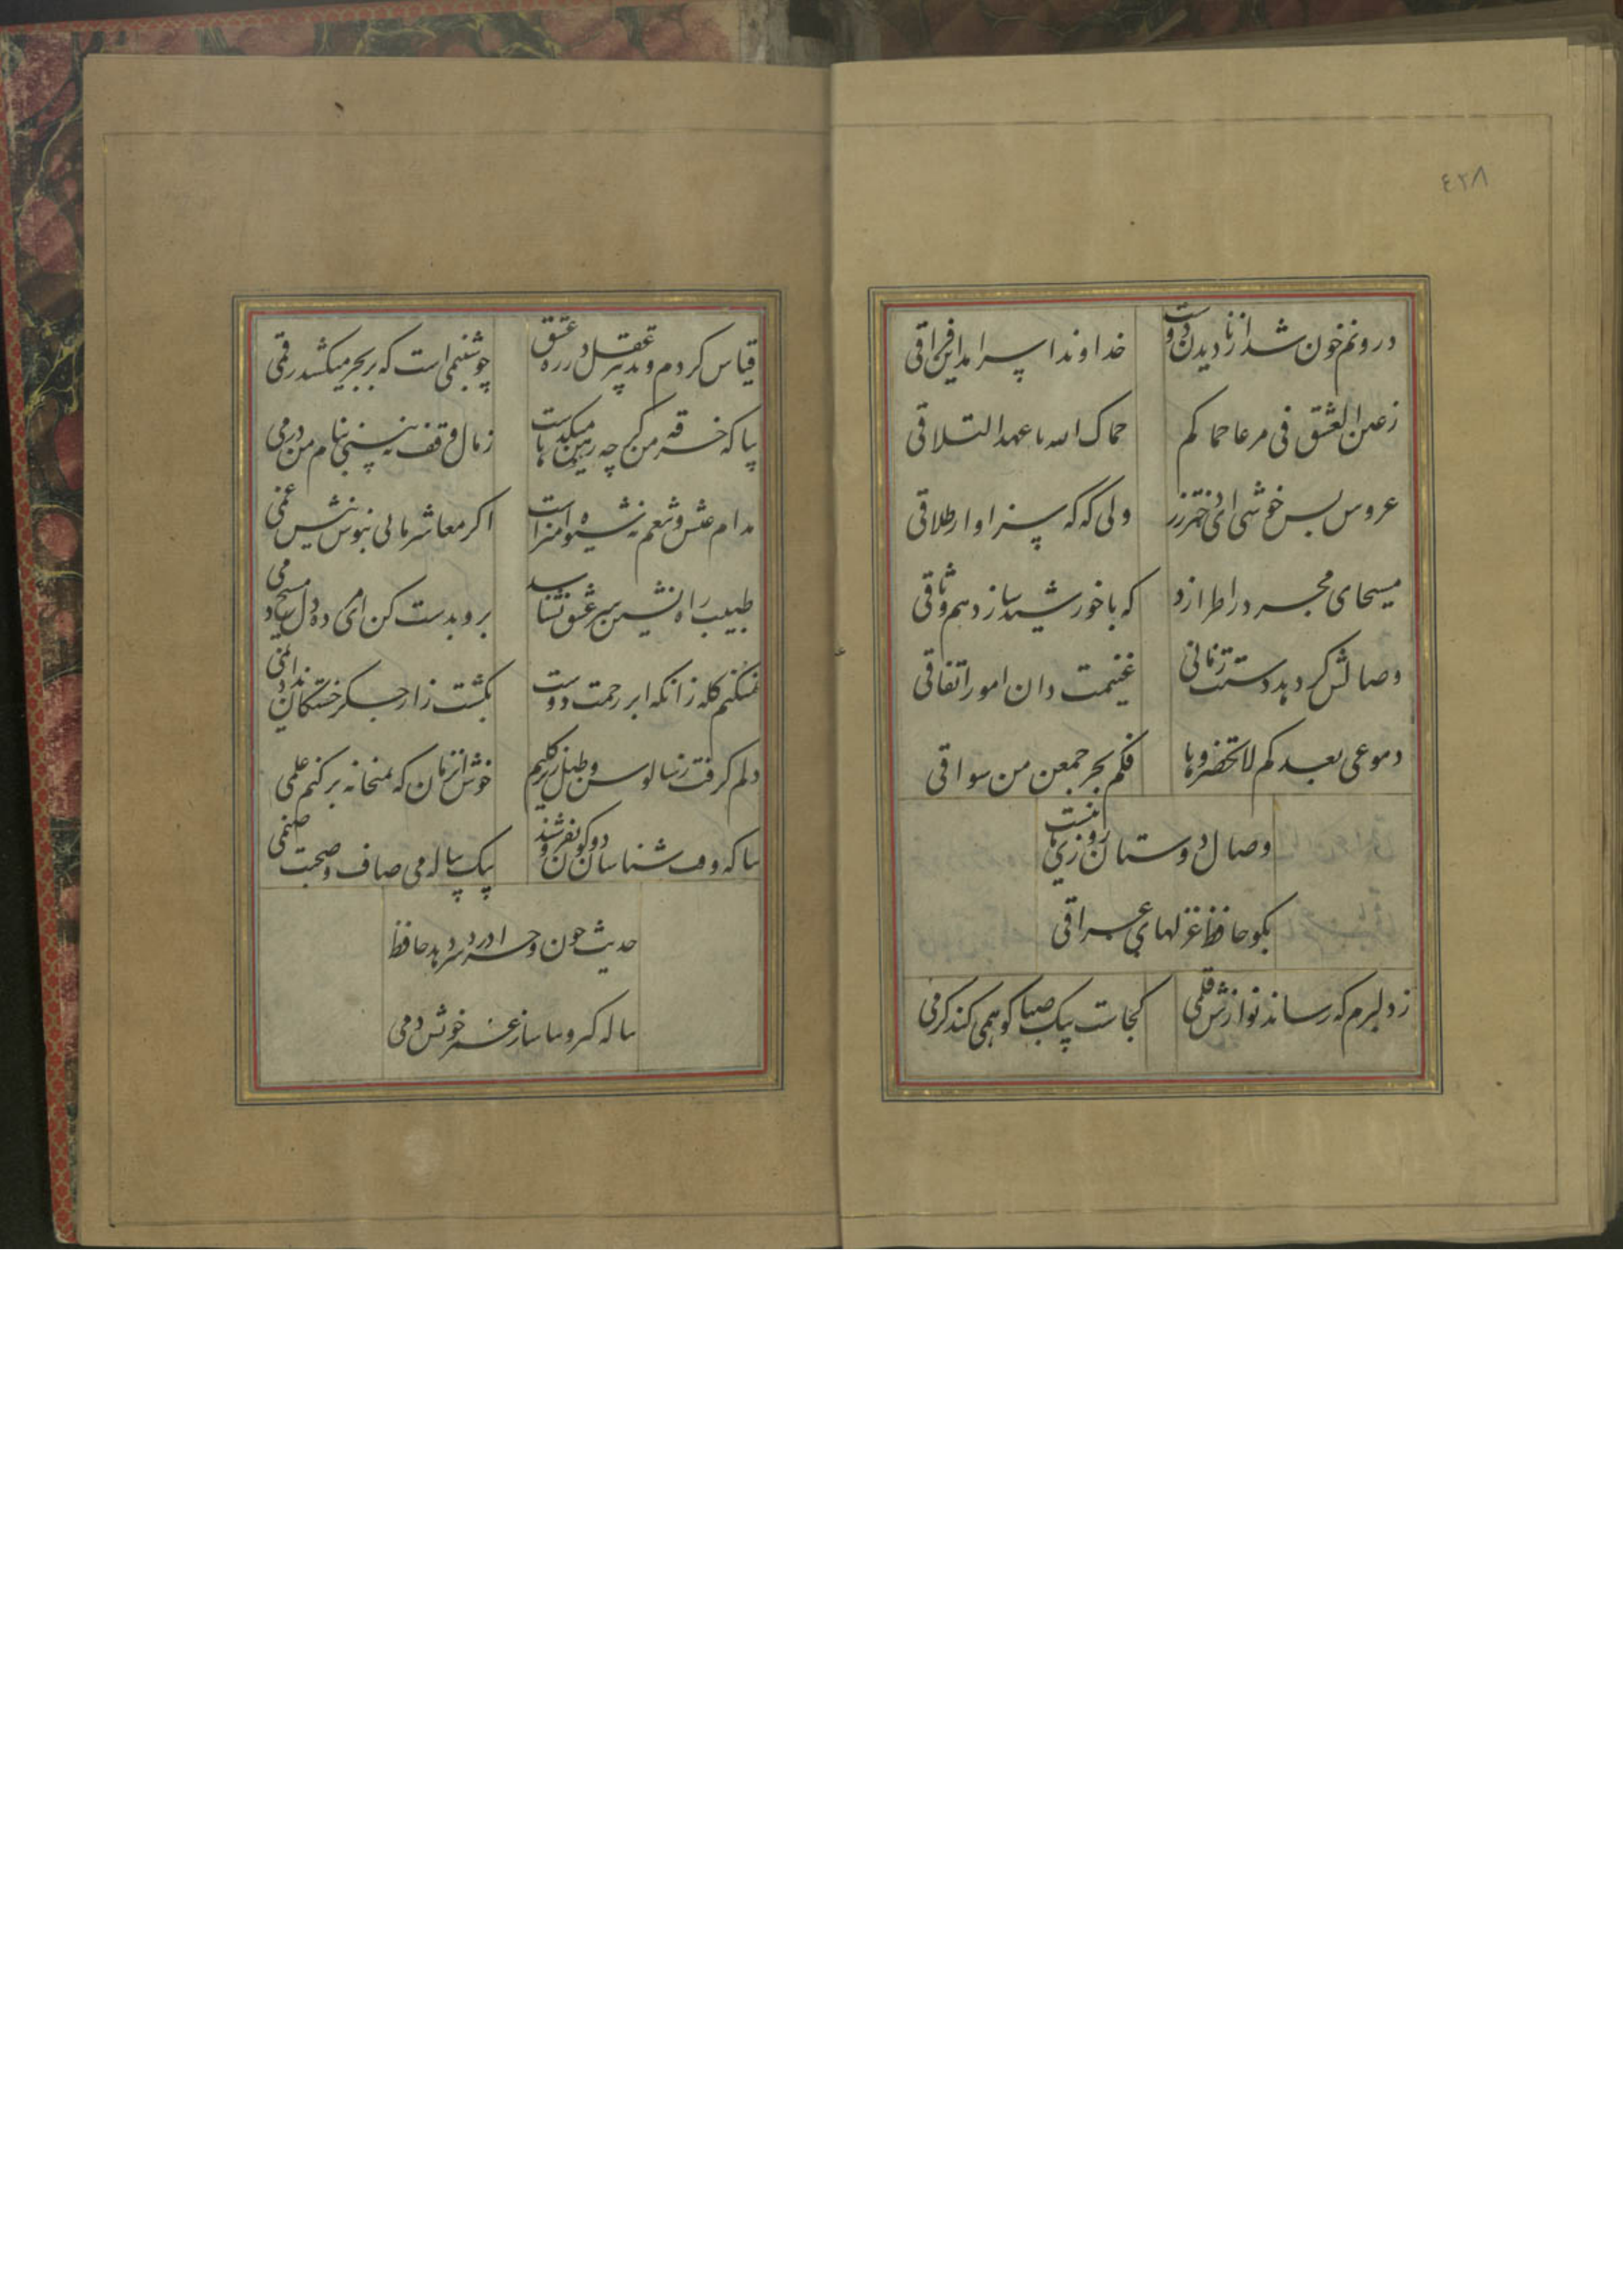 ٤٢٨
درونم خون شد از نادیدن دوست
خداوندا سرامد این فراقی
فی مرعا حماکم
حماک الله یا عهد التلاقی
عروس بس خوشی ای دختر رز
ولی که که سزاوار طلاقی
مسیحای مجرد را طرازد
که با خورشید سازد هم وثاقی
وصالش کر دهد دستت زمانی
غنیمت دان امور اتفاقی
دموعی بعدکم لا تحضروها
فکم بحر جمعن من سواقی
وصال دوستان روزی
بکو حافظ غزلهای عراقی
ز دلبرم که رساند نوازش قلمی
کجاست پیک صبا کو همی کند کرمی
قیاس کردم و تدبیر عقل در ره عشق
چو شبنمی است که بر بحر میکشد رقمی
بیا که خرقه من کر چه رهن میکدهاست
ز مال وقف نبینی بنام من درمی
مدام
اکر معاشر مایی بنوش نیش غمی
طبیب راه نشین سر عشق نشناسد
برو بدست کن ای مرده دل مسیح دمی
نمیکنم کله زانکه ابر رحمت دوست
بکشت زار جکر خستکان نداد نمی
دلم کرفت ز سالوس و طبل زیر کلیم
خوش آنزمان که بمیخانه بر کنم علمی
بیا که وقت شناسان دو کون بفروشند
بیک پیاله می صاف و صحبت صنمی
حدیث چون و چرا درد سر دهد حافظ
پیاله کیر و بیاساز عمر خوش دمی